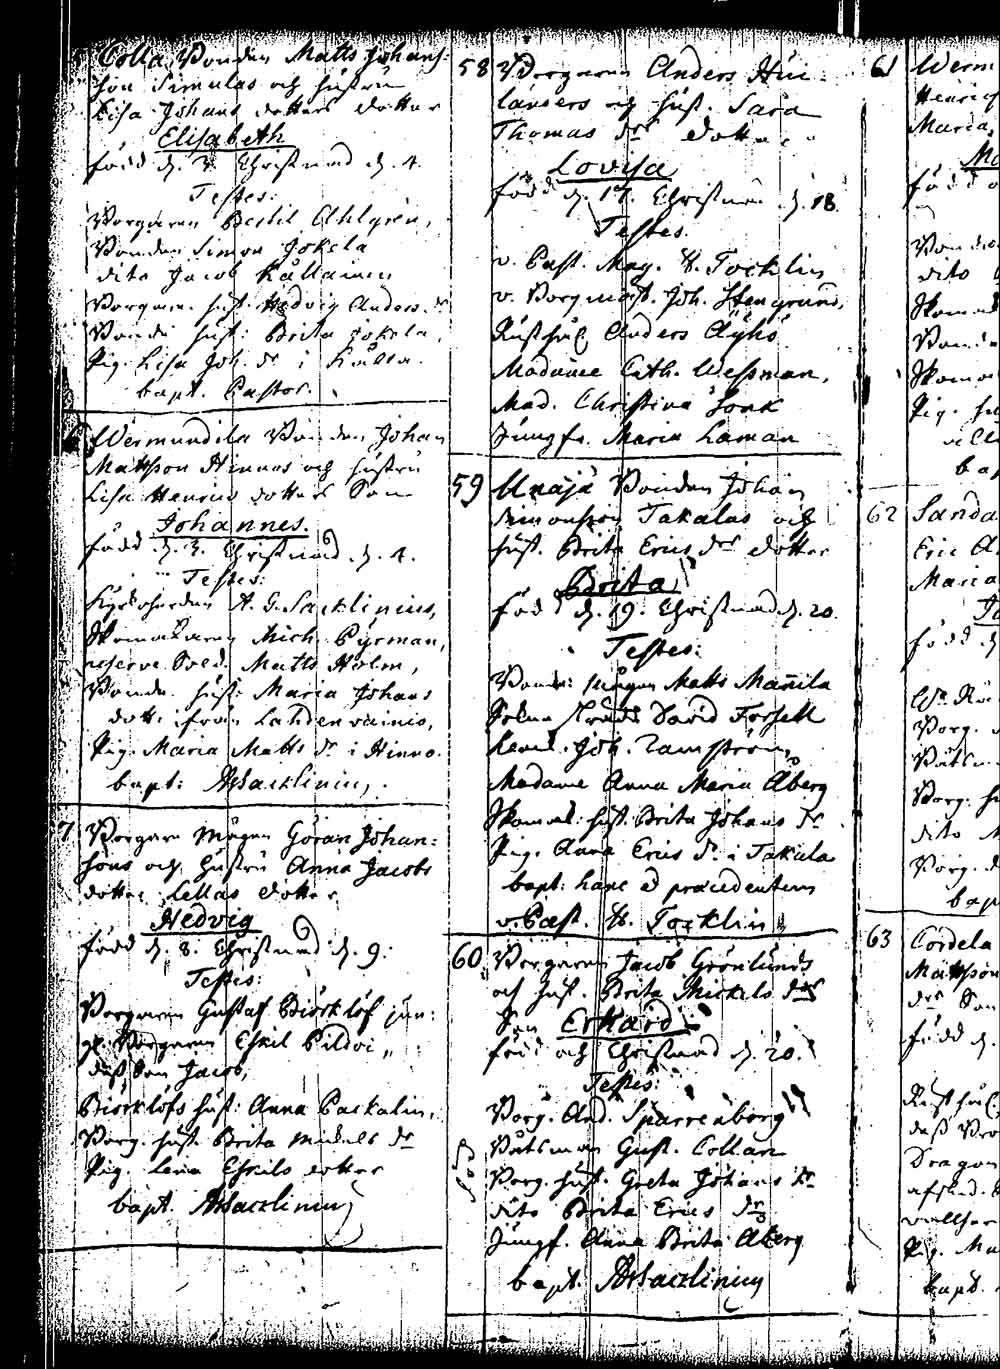 Colla, Bonden Matts Johans-
son Simulas och hustru
Lisa Johans dotters dotter
Elisabeth
född d. 3. Christnad d. 4.
Testes:
Borgaren Bertil Ahlgren,
Bonden Simon Jokela
dito Jacob Källainen
Borgaren. hust. Hedvig Anders. dr
Bonde hust: Brita Jokela,
Pig. Lisa Joh. dr i Källa.
bapt. Pastor.
6 Wermundila Bonden Johan
Mattsson Hinnos och hustru
Lisa Henrics dotters Son
Johannes.
född d. 3. Christnad d. 4.
Testes:
Kyrkoherden A. G. Sacklinius,
Skomakaren Mich. Pyrman,
reserve Sold. Matts Holm,
Bonde hust: Maria Johans
dott: ifrån Lahdenvainio,
Pig. Maria Matts dr i Hinno.
bapt: AGSacklinius,
7 Borgare mågen Göran Johan:
sons och hustru Anna Jacobs
dotter Lellas dotter
Hedvig
född d. 8. Christnad d. 9.
Testes:
Borgaren Gustaf Biörklöf jun:
Borgaren Eskil Pildoi,,
dess Son Jacob,
Biörklöfs hust: Anna Packalin,
Borg. hust. Brita Mickels dr
Pig. Lena Eskils dotter
bapt. AGSacklinius
58 Borgaren Anders Hii-
länders och hust. Sara
Thomas dr dotter
Lovisa
född d. 17. Christnad d. 18.
Testes.
v. Past. Mag. H. Tocklin
v. Borgmäst. Joh. Stengrund,
Rusthål. Anders Äyhö
Madame Cath. Wessman,
Mad. Christina Sonk
Jungfr. Maria Laman
59 Unaja Bonden Johan
Simonsson Takalas och
hust. Brita Erics drs dotter
Brita
född d. 19. Christnad d. 20.
Testes:
Bonde: mågen Matts Mañila
David Forsell
Joh. Ramström,
Madame Anna Maria Åberg
Skomak: hust. Brita Johans dr
Pig. Anna Erics dr i Takala
bapt: hanc et præcedentem
v. Past. H. Tocklin
60 Borgaren Jacob Grönlunds
och hust. Brita Mickels drs
Son Erkard
född och Christnad d. 20.
Testes:
Borg. And. Sparrenborg
Båtsman Gust. Collan
Borg. hust. Greta Johans dr
dito Brita Erics dr
Jungf. Anna Brita Åberg
bapt. AGSacklinius
61 Werm
Henrics
Maria
Ma
född d
Bonden
dito
Skomak
Bonde
Skomak
Pig.
bap
62 Sanda
Eric A
Maria
född d
Borg.
Båtsm
Borg. hu
dito
Borg. d
bap
63 Cordela
Mattsson
drs Son
född d.
Rusthål.
dess Bro
Dragon
afsked.
Pig. Ma
bapt.